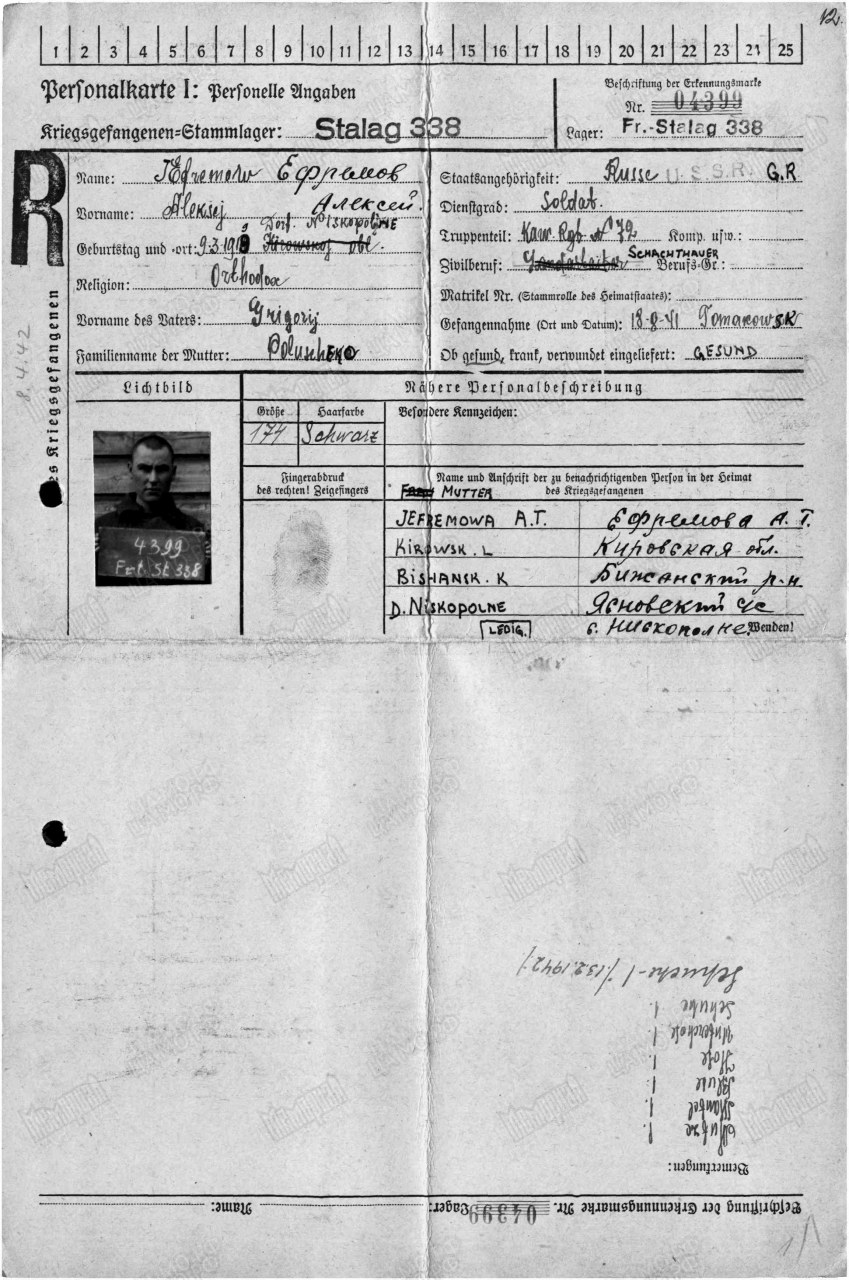 12.
1 2 3 4 5 6 7 8 9 10 11 12 13 14 15 16 17 18 19 20 21 22 23 24 25
Personalkarte I: Personelle Angaben
Beschriftung der Erkennungsmarke
Nr. 04399
Kriegsgefangenen-Stammlager: Stalag 338
Lager: Fr.-Stalag 338
R
des Kriegsgefangenen
8.4.42
Name: Jefremow Ефремов
Vorname: Aleksej Алексей.
Dorf. Niskopolne
Geburtstag und -ort: 9.3.1918 Kirowskoj obl.
Religion: Orthodox
Vorname des Vaters: Grigorij
Familienname der Mutter:
Staatsangehörigkeit: Russe U.S.S.R. G.R
Dienstgrad: Soldat.
Truppenteil: Kaw. Rgt. № 72 Komp. usw.:
Zivilberuf: Landarbeiter SCHACHTHAUER Berufs-Gr.:
Matrikel Nr. (Stammrolle des Heimatstaates):
Gefangennahme (Ort und Datum): 18-8-41 Tomakowsk
Ob gesund, krank, verwundet eingeliefert: GESUND
Lichtbild
Nähere Personalbeschreibung
Größe Haarfarbe Besondere Kennzeichen:
174 Schwarz
Fingerabdruck
des rechten! Zeigefingers
Name und Anschrift der zu benachrichtigenden Person in der Heimat
des Kriegsgefangenen
MUTTER
JEFREMOWA A.T. Ефремова А. Т.
KIROWSK. L Кировская обл.
BISHANSK. K Бижанский р-н
Ясновский с/с
D. NISKOPOLNE с. Нискополне.
LEDIG.
Wenden!
4399
Frt. St 338
Beschriftung der Erkennungsmarke Nr. 04399 Lager: Name:
Bemerkungen:
Mütze 1.
Mantel 1.
Bluse 1.
Hose 1.
Unterhose 1.
Schuhe 1.